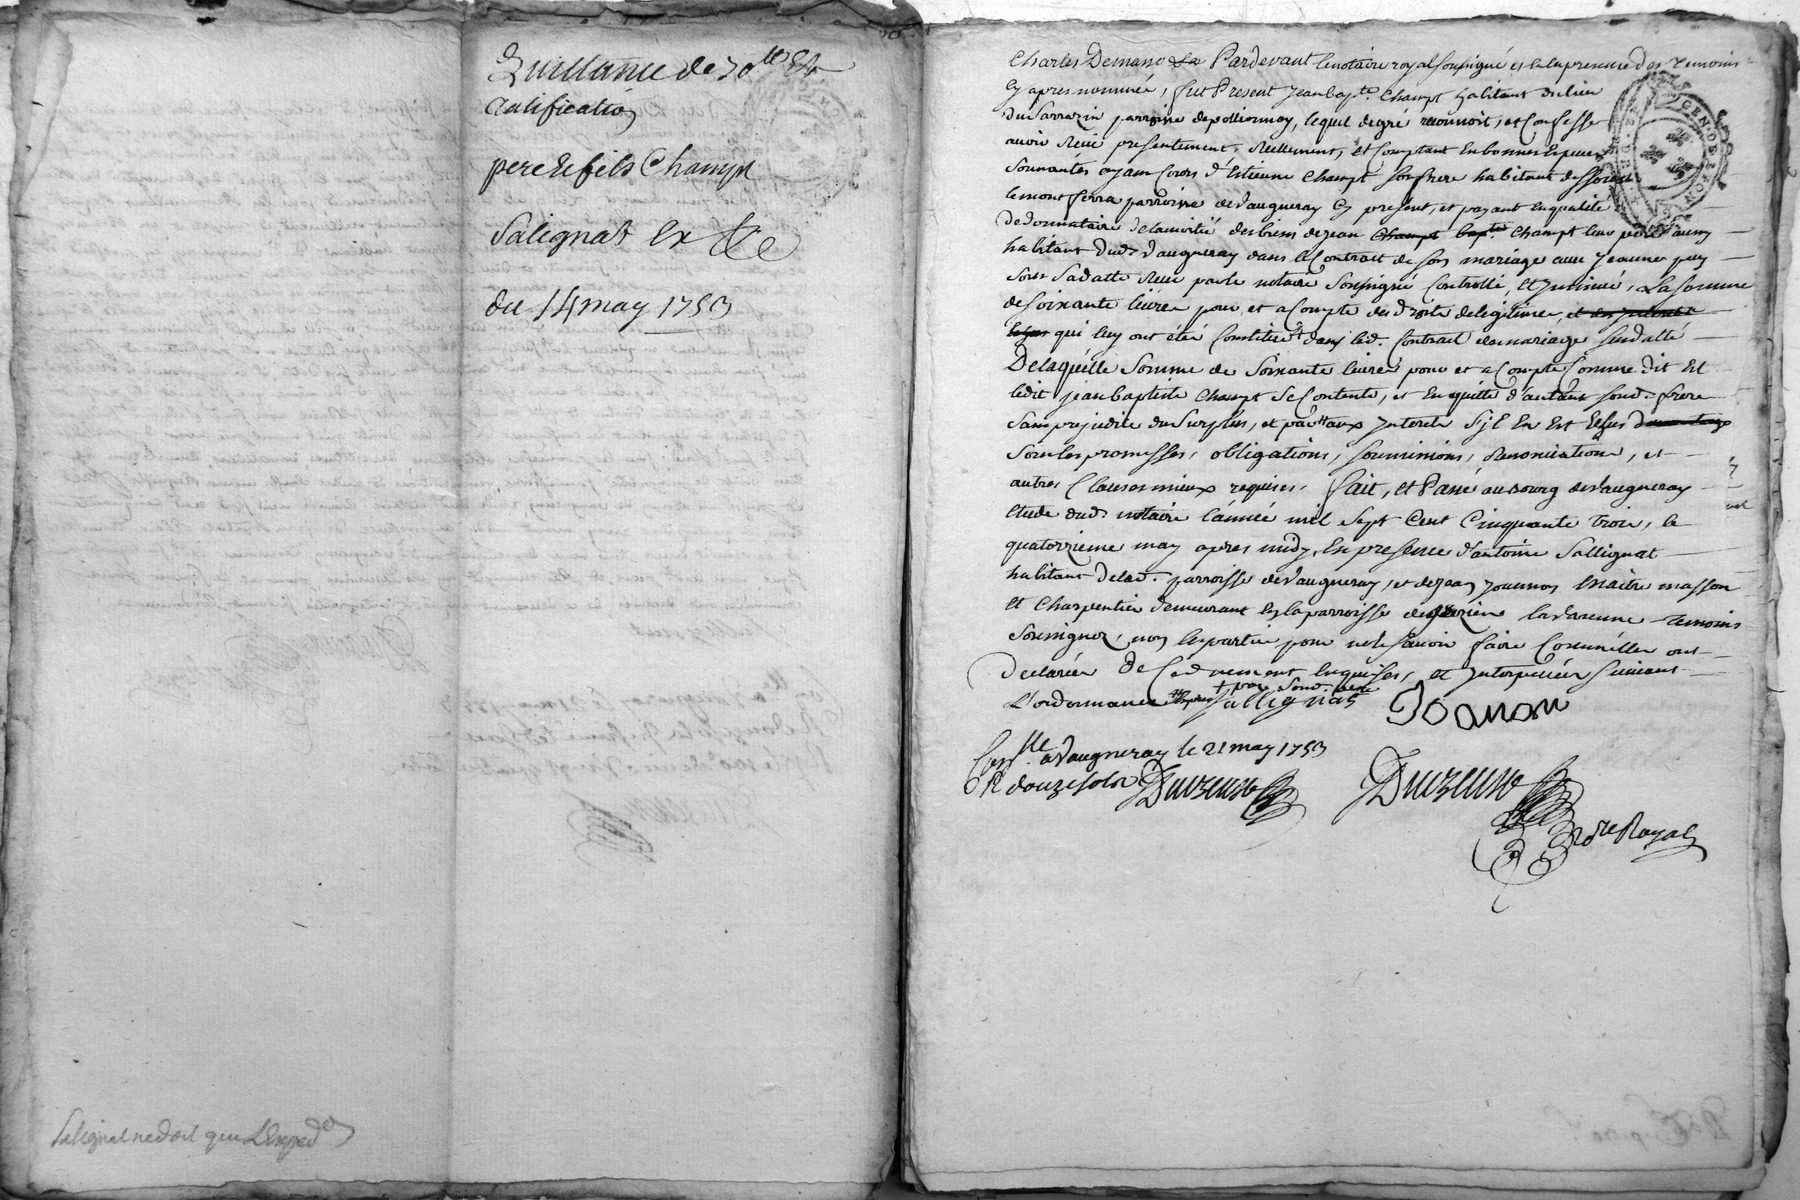 Quittance de 70 tt Et
Ratification
pere Et fils Champt
Salignat Ex
du 14 may 1753
Salignat ne doit que L'Exped
Charles Demane Pardevant le notaire royal sousigné et En la presence des Temoins
Cy apres nommés, fut Present Jean bapte. Champt habitant du lieu
du Sarrazin parroisse de pollionnay, lequel de gre reconnoit, et Confesse
avoir Receu presentement, Reellement, et Comptant En bonnes Especes
Sonnantes ayant Cours d'Estienne Champt son frere habitant
le mont ferra parroisse de Vaugneray Cy present, et payant En qualité
De donnataire de la moitié des biens de Jean Champt bapte. Champt leur pere aussy
habitant dud. Vaugneray dans le Contrat de son mariage avec Jeanne
Sous Sa datte Receu par le notaire Sousigné Controllé, Et Insinué, La somme
de soixante livres pour et a Compte des droits de legitime,
qui luy ont été Constitués dans led. Contrat de mariage susdatté
De laquelle Somme de Soixante livres pour et a Compte Comme dit Est
ledit Jean baptiste Champt Se Contente, et En quitte d'autant sond. frere
Sans prejudice du Surplus, et aux Interets S'il En Est
Sous les promesses, obligations, soumissions, Renonciations, et
autres Clauses mieux requises. fait, Et Passé au Bourg de Vaugneray
Etude dud. notaire L'année mil Sept Cent Cinquante trois, le
quatorzieme may apres midy, En presence d'antoine Sallignat
habitant de lad. parroisse de Vaugneray, et de Jean Joannon Maitre masson
Et Charpentier demeurant En la parroisse de la Varenne Temoins
Sousignez, non les parties pour ne le Sçavoir faire Comme Elles ont
declarées de Ce duement Enquises, et Interpellées Suivant
+ par Sond. pere
L'ordonnance Sallignat Joanon
Conlle. a Vaugneray le 21 may 1753
R douze sols
Nore Royal